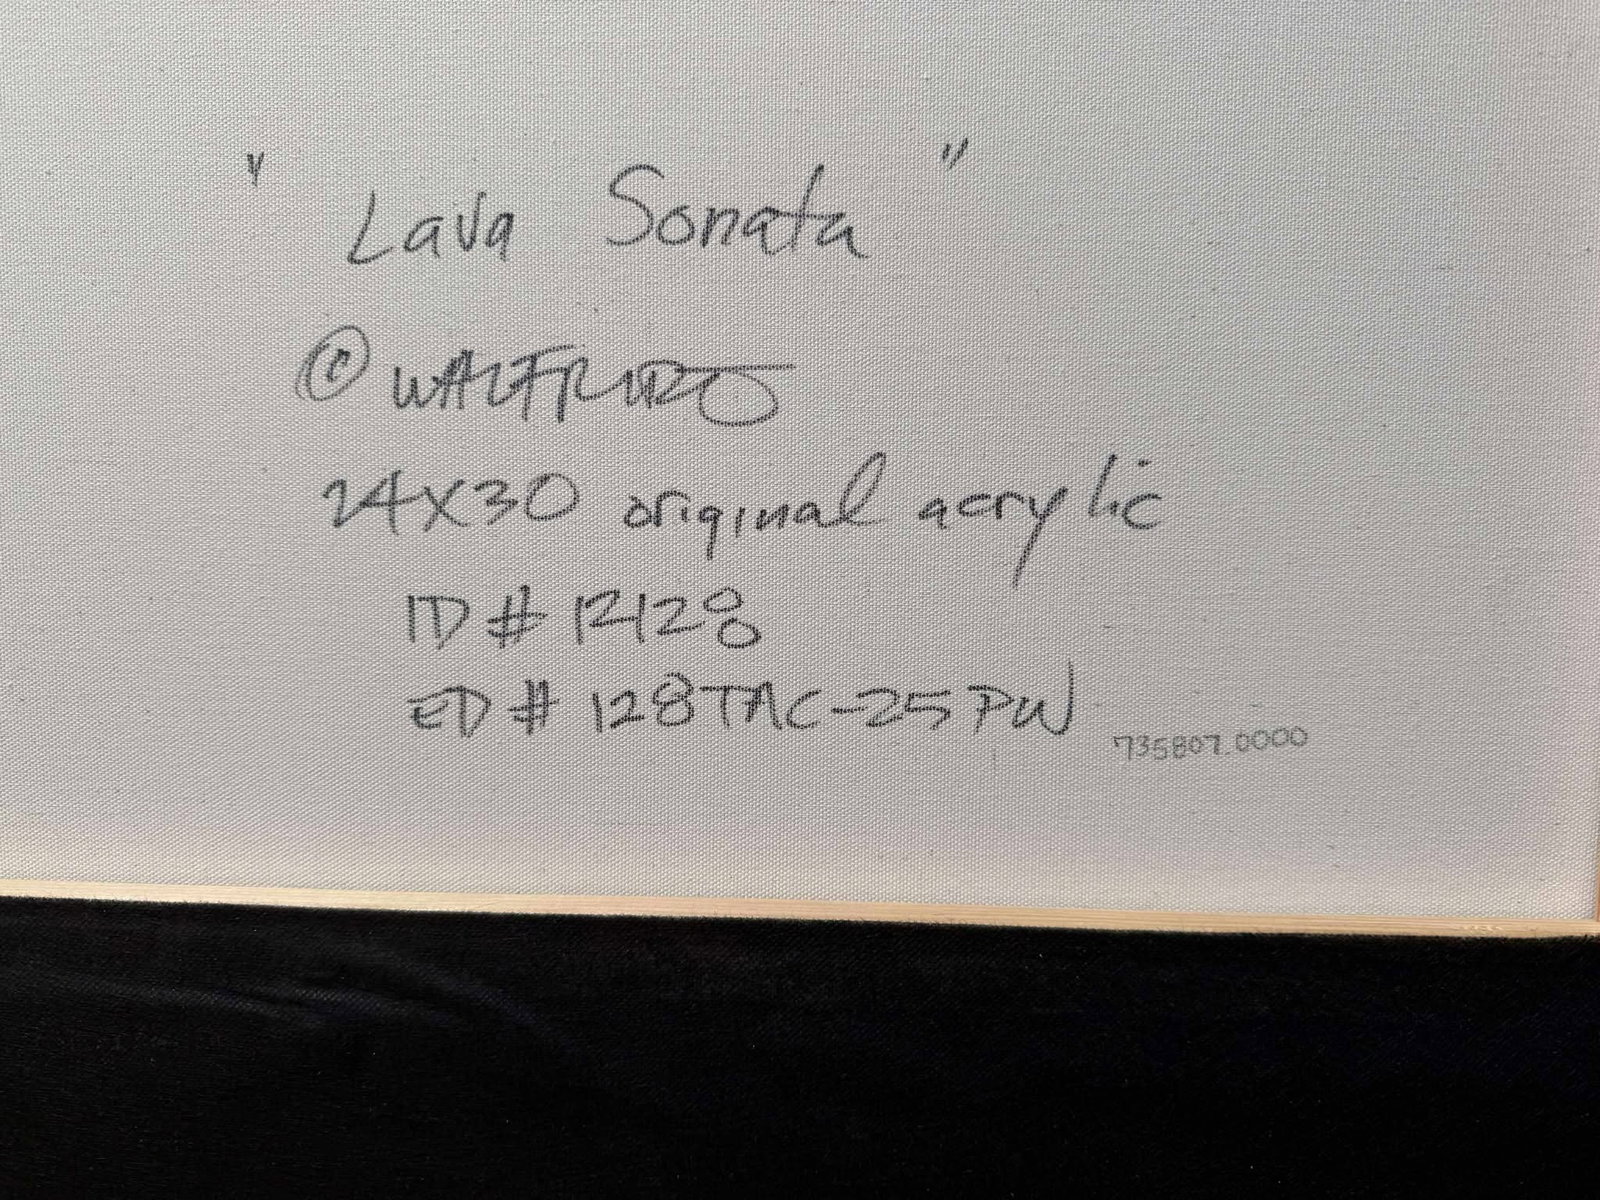 "Lava Sonata"
© WALFRIDO
24X30 original acrylic
ID # 12128
ED # 128TAC-25PW
735807.0000